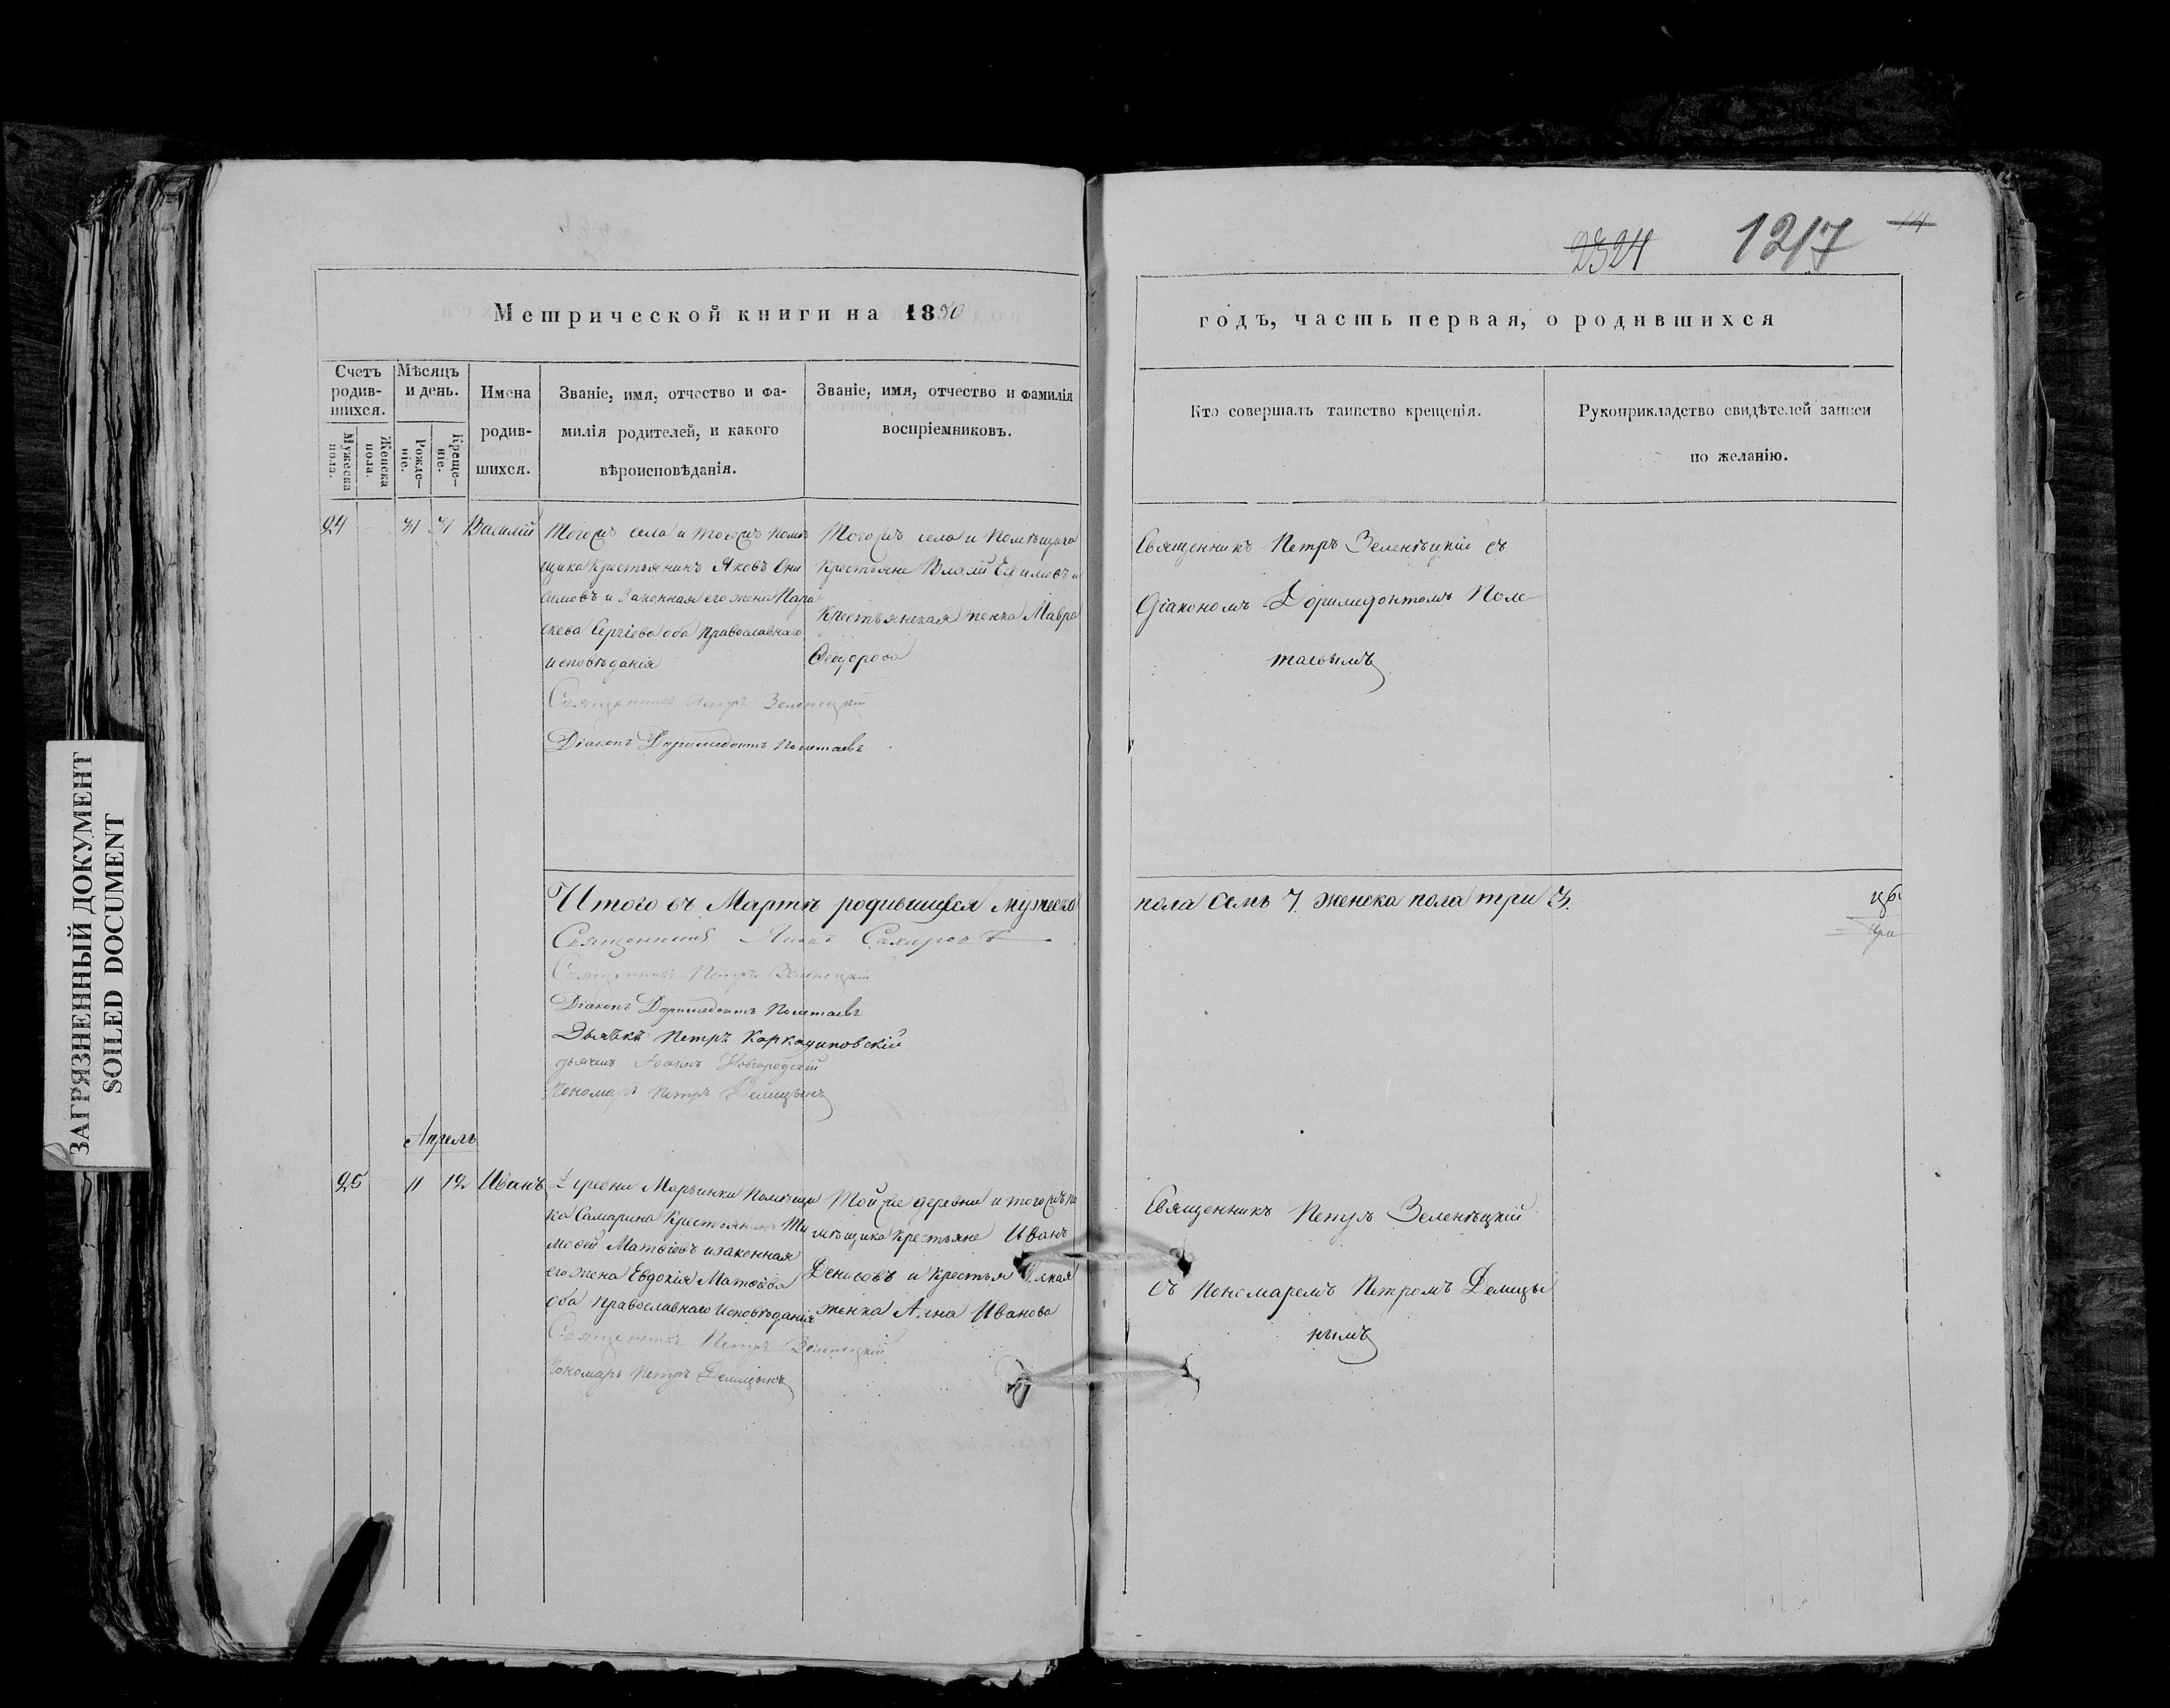 2324 1217 14
Метрической книги на 1850
годъ, часть первая, о родившихся
Счетъ родив-шихся.
Мужеска пола.
Женска пола.
Мѣсяцъ и день.
Рожде-ніе.
Креще-ніе.
Имена родив-шихся.
Званіе, имя, отчество и фа-
милія родителей, и какого
вѣроисповѣданія.
Званіе, имя, отчество и фамилія
воспріемниковъ.
Кто совершалъ таинство крещенія.
Рукоприкладство свидѣтелей записи
по желанію.
24 31 31 Василій
Тогожъ села и тогожъ помѣ
щика крестьянинъ Яковъ Они
симовъ и законная его жена Пара
скева Сергіева оба православнаго
исповѣданія
Священникъ Петръ Зеленецкій
Діаконъ Доримедонтъ Полетаевъ
Тогожъ села и помѣщика
крестьяне Власій Ефимовъ и
крестьянская женка Мавра
Феодорова
Священникъ Петръ Зеленѣцкій съ
Діакономъ Доримедонтомъ Поле
таевымъ
Итого въ Мартѣ родившихся мужеска
пола семь 7. женска пола три 3.
Священникъ Сахаровъ
Священникъ Петръ Зеленецкій
Діаконъ Доримедонтъ Полетаевъ
Дьячекъ Петръ Каркадиновскій
дьячекъ Новгородскій
Пономарь Петръ Делицынъ
Апрель
25 11 12 Иванъ
Деревни Марьинки помѣщи
ка Самарина крестьянинъ Ти
мофей Матвіевъ и законная
его жена Евдокія Матвіева
оба православнаго исповѣданія
Священникъ Петръ Зеленецкій
Пономарь Петръ Делицынъ
Той же деревни и тогожъ по
мѣщика крестьяне Иванъ
Денисовъ и крестьянская
женка Анна Иванова
Священникъ Петръ Зеленѣцкій
съ Пономаремъ Петромъ Делицы
нымъ
ЗАГРЯЗНЕННЫЙ ДОКУМЕНТ
SOILED DOCUMENT